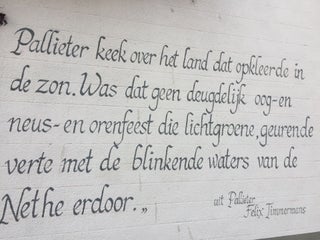 Pallieter keek over het land dat opkleerde in
de zon. Was dat geen deugdelijk oog-en
neus- en orenfeest die lichtgroene, geurende
verte met de blinkende waters van de
Nethe erdoor.„
uit Pallieter
Felix Timmermans